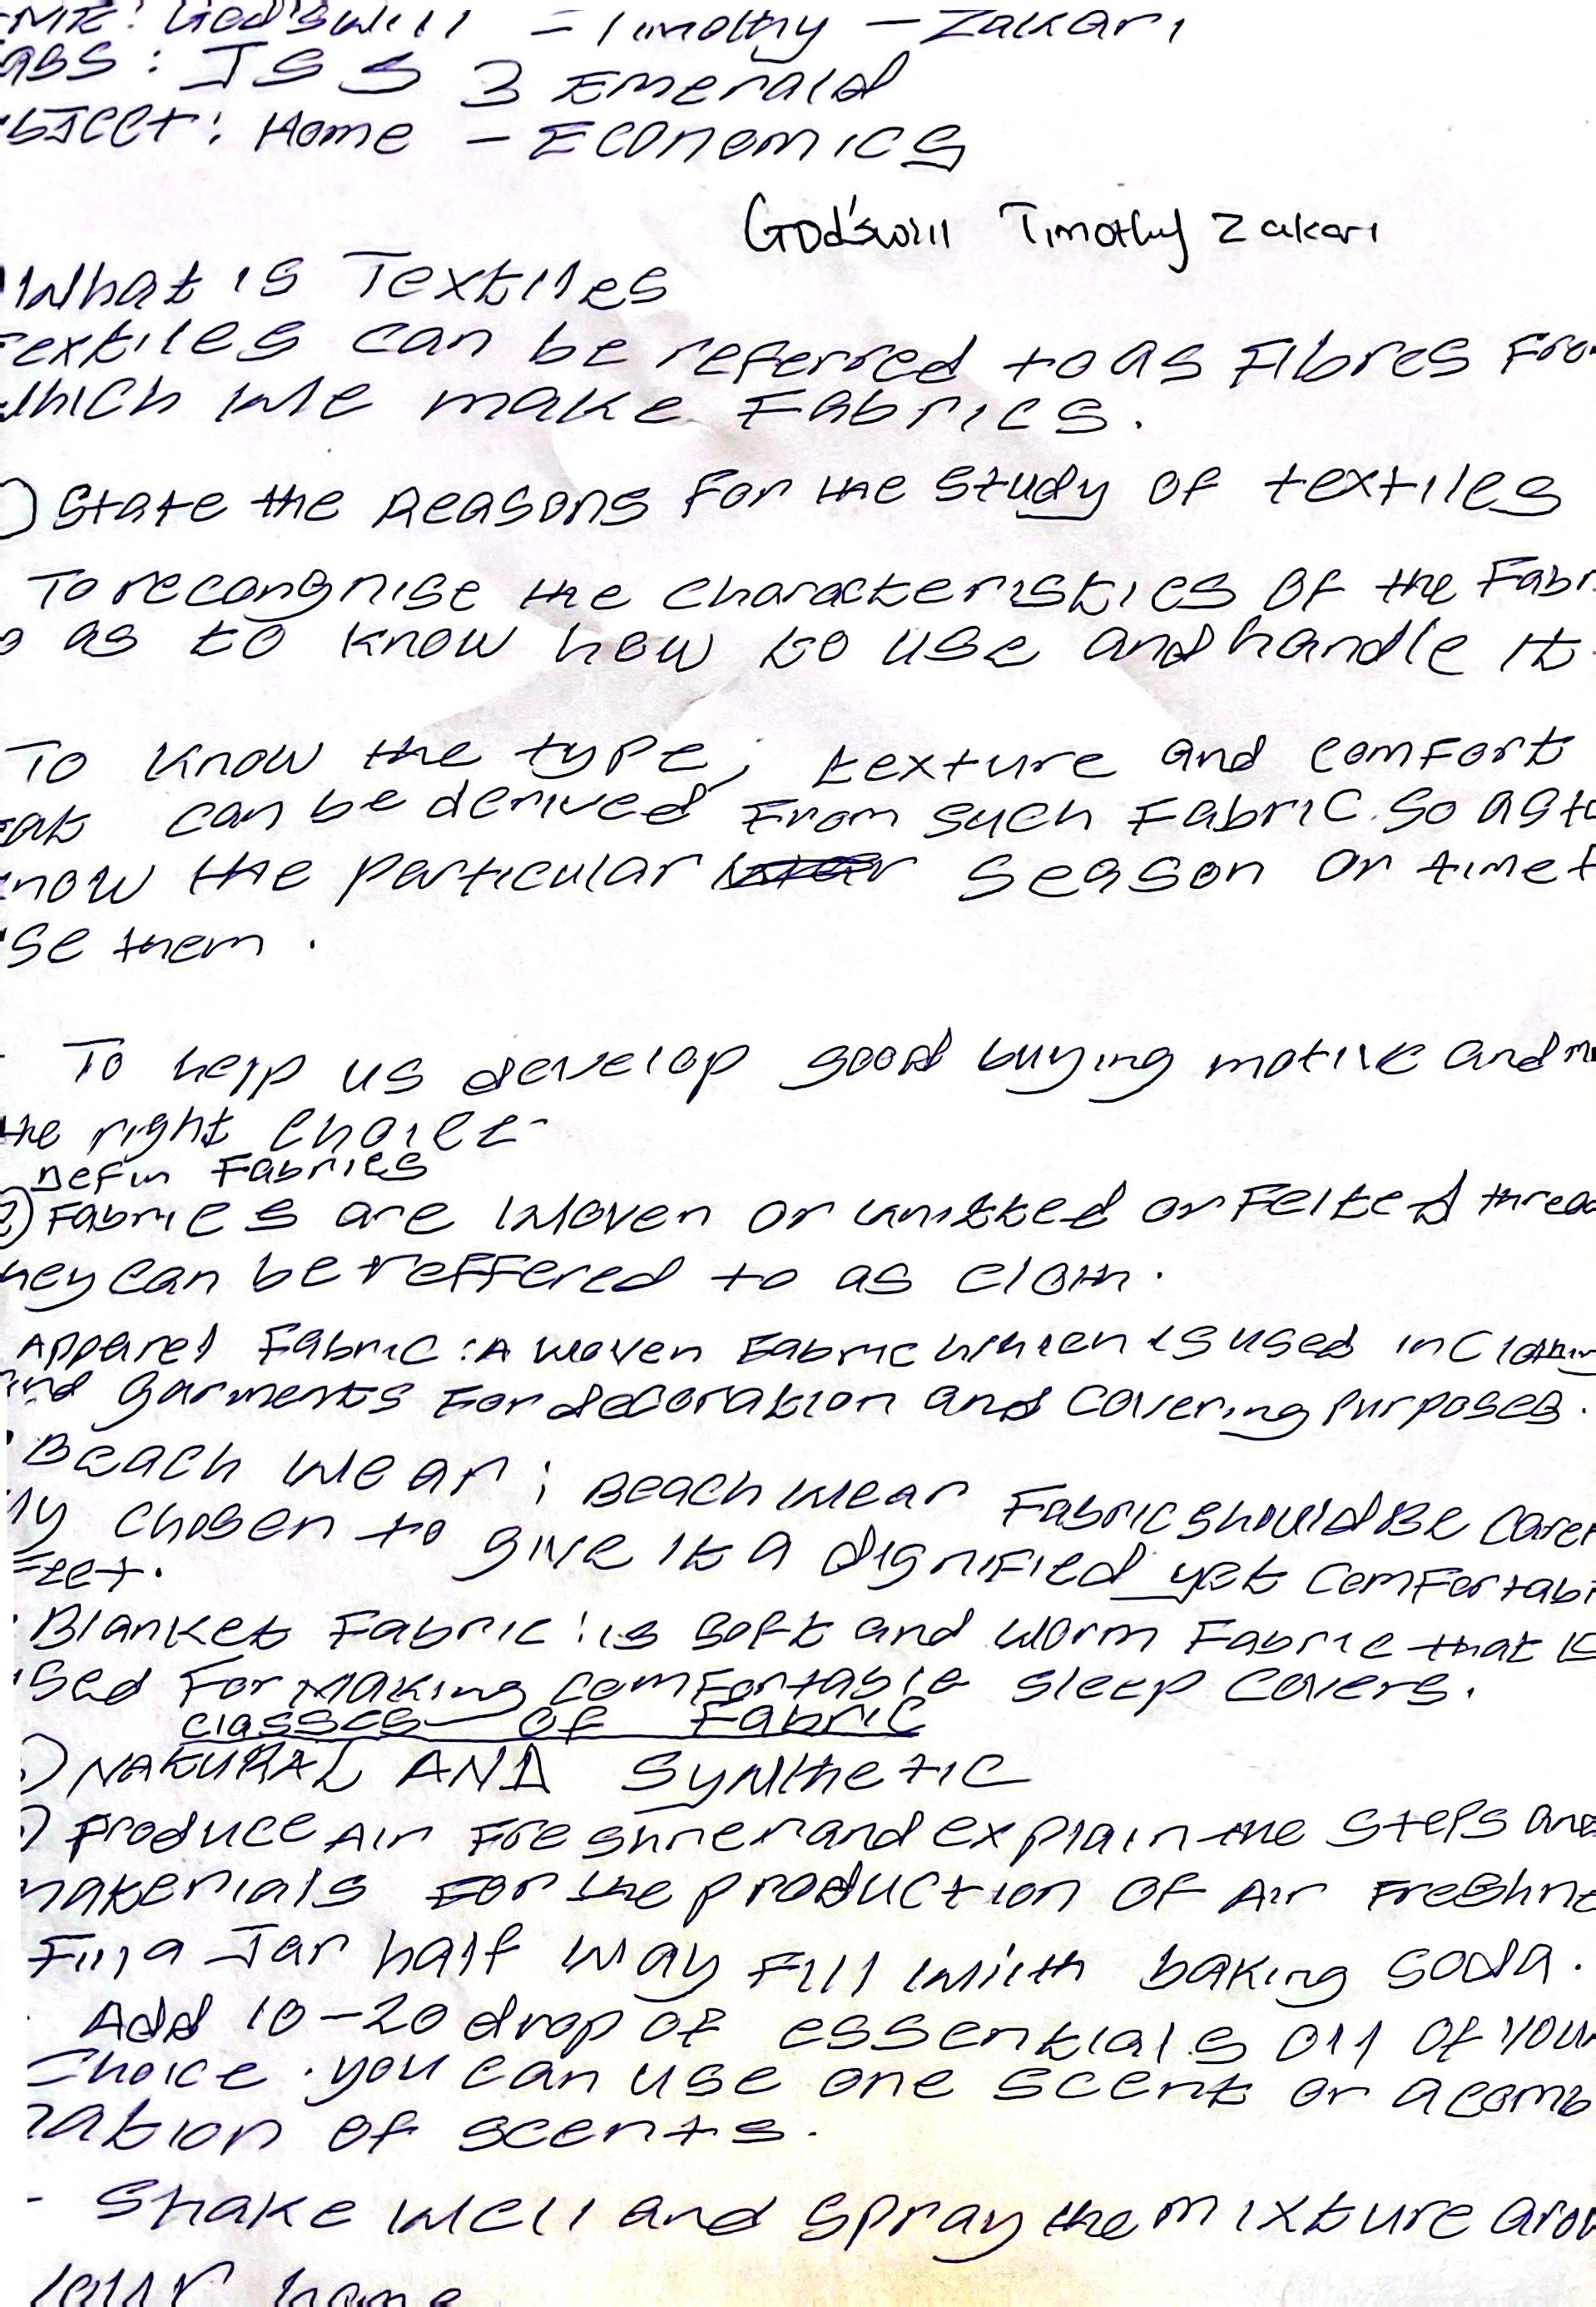 : God'swill - Timothy - Zakari
ass : JSS 3 Emerald
bject : Home - Economics
God'swill Timothy Zakari
What is Textiles
Textiles can be referred to as Fibres Fro
which we make Fabrics.
) State the Reasons for the study of textiles
To recongnise the characteristics of the Fabr
o as to know how to use and handle it
To know the type, texture and comfort
at can be derived From such Fabric. so as to
now the particular season or time t
se them.
- To help us develop good buying motive and m
the right choice
Defin Fabrics
2) Fabrics are woven or knitted or Felted threa
hey can be reffered to as cloth.
Apparel Fabric : A woven Fabric which is used in Clothing
and garments For decoration and covering purposes.
Beach wear ; Beach wear Fabric should Be Caref
ly chosen to give it a dignified yet Comfortabl
Feet.
Blanket Fabric : is soft and worm Fabric that is
used For Making comfortable sleep covers.
classes of Fabric
) NATURAL AND Synthetic
) Produce Air Freshner and explain the steps and
materials For the production of Air Freshne
Fill a Jar half way Fill with baking soda.
Add 10-20 drop of essentials oil of your
Choice. you can use one scent or a comb
nation of scents.
- Shake well and spray the mixture arou
your home